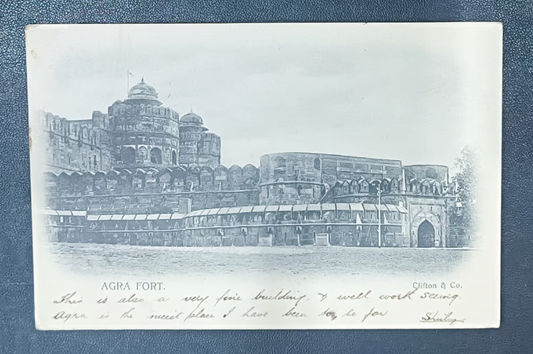 AGRA FORT.
Clifton & Co.
This is also a very fine building, & well work seeing.
Agra is the nicest place I have been to so far